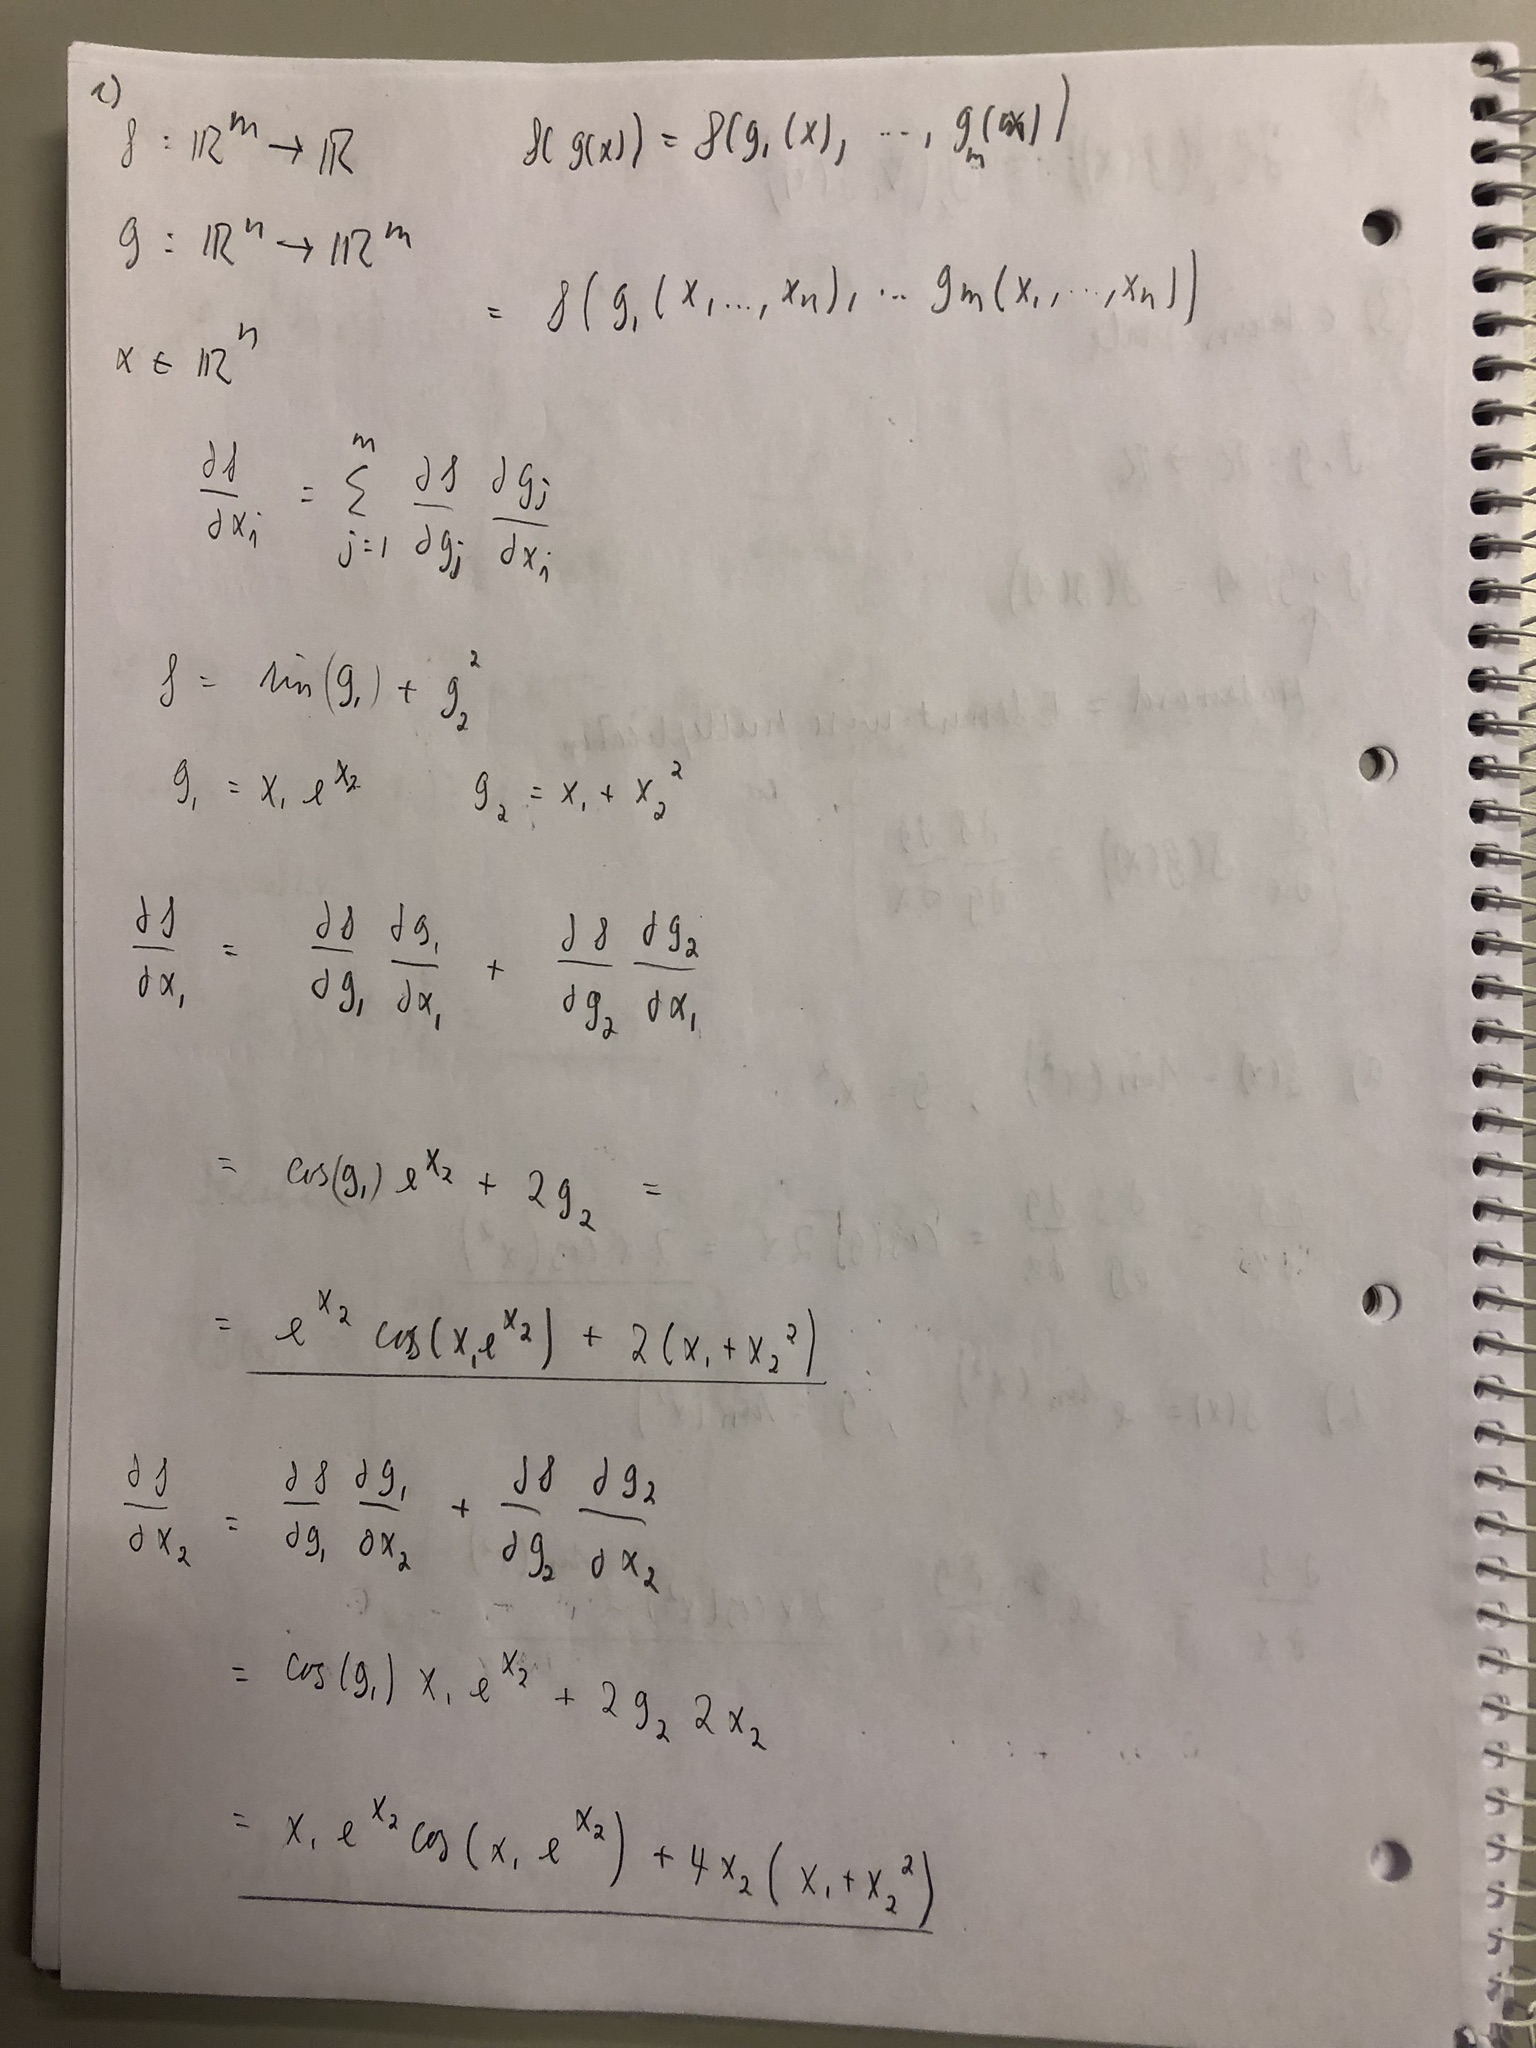 c)
f : ℝ^m → ℝ    f(g(x)) = f(g₁(x), ..., g_m(x))
g : ℝ^n → ℝ^m
= f(g₁(x₁, ..., x_n), ... g_m(x₁, ..., x_n))
x ∈ ℝ^n
∂f/∂x_i = Σ_{j=1}^{m} ∂f/∂g_j ∂g_j/∂x_i
f = sin(g₁) + g₂²
g₁ = x₁ e^{x₂}    g₂ = x₁ + x₂²
∂f/∂x₁ = ∂f/∂g₁ ∂g₁/∂x₁ + ∂f/∂g₂ ∂g₂/∂x₁
= cos(g₁) e^{x₂} + 2g₂ =
= e^{x₂} cos(x₁e^{x₂}) + 2(x₁ + x₂²)
∂f/∂x₂ = ∂f/∂g₁ ∂g₁/∂x₂ + ∂f/∂g₂ ∂g₂/∂x₂
= cos(g₁) x₁ e^{x₂} + 2g₂ 2x₂
= x₁ e^{x₂} cos(x₁ e^{x₂}) + 4x₂(x₁ + x₂²)